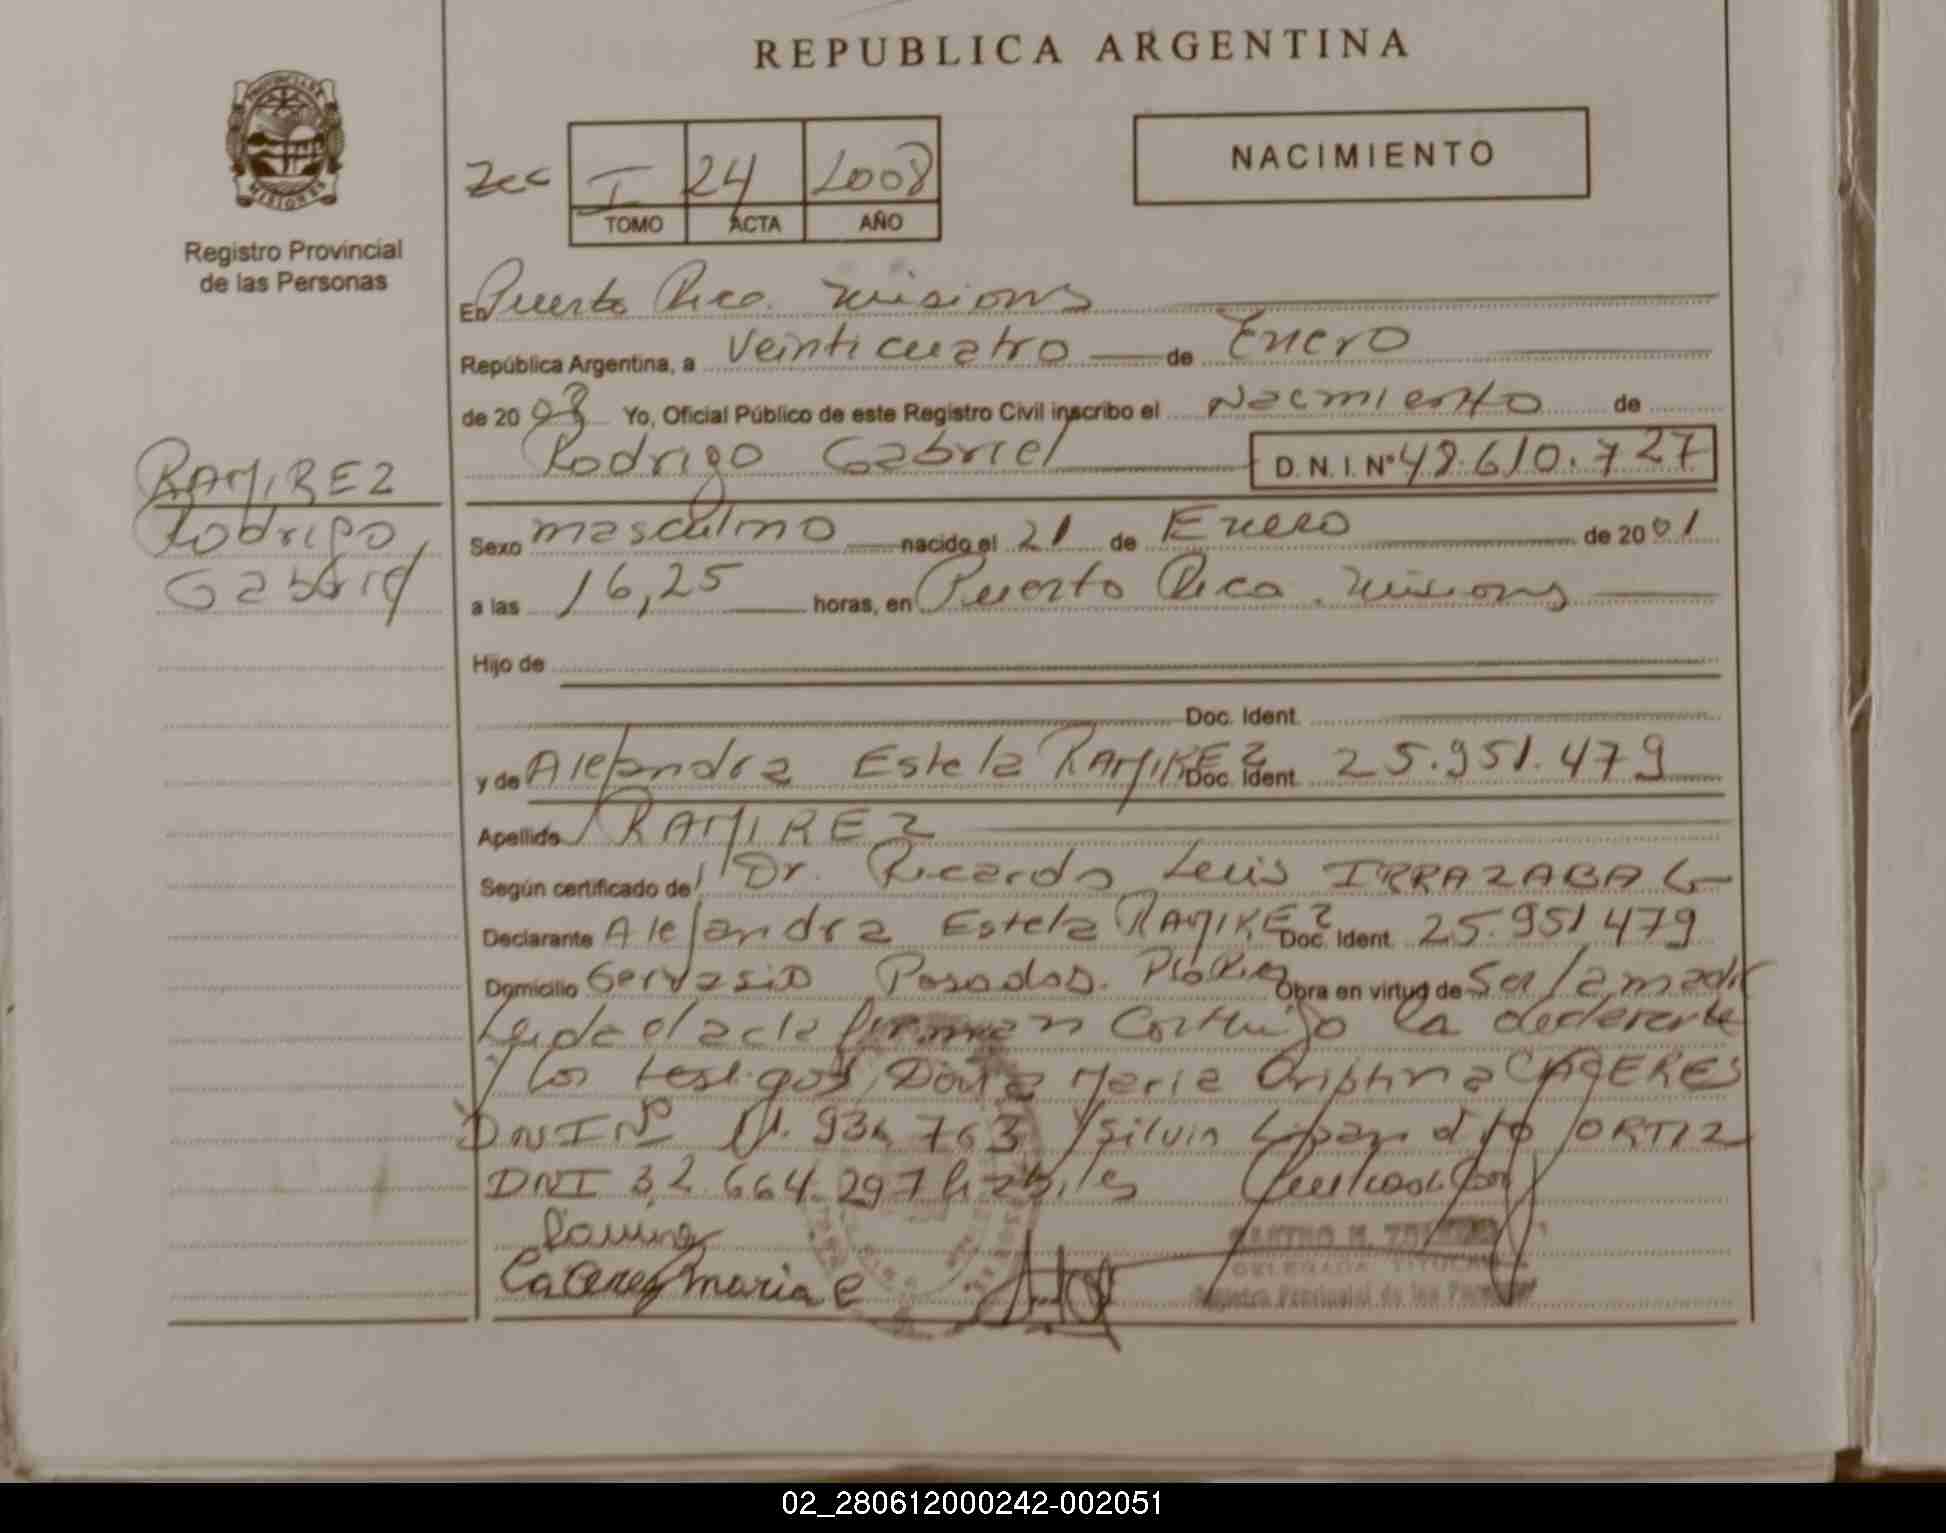 REPUBLICA ARGENTINA
PROVINCIA DE MISIONES
Registro Provincial
de las Personas
NACIMIENTO
I 24 2008
TOMO ACTA AÑO
En Puerto Rico. Misiones
República Argentina, a veinticuatro de Enero
de 2008 Yo, Oficial Público de este Registro Civil inscribo el Nacimiento de
Rodrigo Gabriel D.N.I. Nº 48.610.727
RAMIREZ
Rodrigo
Gabriel
Sexo masculino nacido el 21 de Enero de 2001
a las 16,25 horas, en Puerto Rico. Misiones
Hijo de
Doc. Ident.
y de Alejandra Estela RAMIREZ Doc. Ident. 25.951.479
Apellido RAMIREZ
Según certificado del Dr. Ricardo Luis IRRAZABAL
Declarante Alejandra Estela RAMIREZ Doc. Ident. 25.951479
Domicilio Gervasio Posadas. Pto Rico Obra en virtud de Ser la madre
Leida el acta firman Conmigo la declarante
y los testigos, Doña Maria Cristina CACERES
DNI Nº 936 763 y Silvin Lisandro ORTIZ
DNI 32.664.297 habiles
Ramirez
Caceres Maria C
DELEGADA TITULAR
Registro Provincial de las Personas
02_280612000242-002051